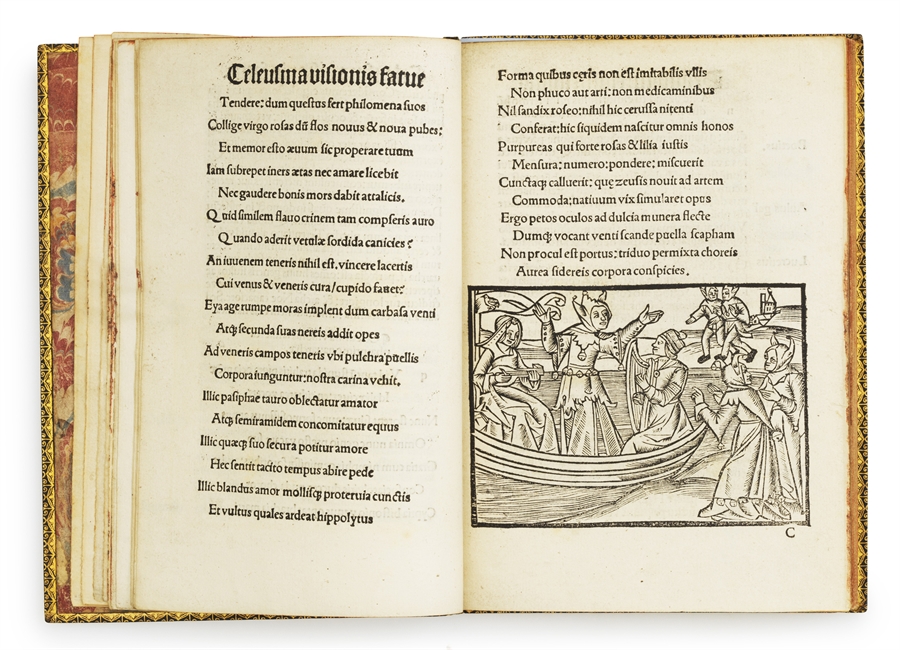 Celeusma visionis fatue
Tendere: dum questus fert philomena suos
Collige virgo rosas dū flos nouus & noua pubes:
Et memor esto æuum sic properare tuum
Iam subrepet iners ætas nec amare licebit
Nec gaudere bonis mors dabit attalicis.
Quid similem flauo crinem tam compseris auro
Quando aderit vetulæ sordida canicies?
An iuuenem teneris nihil est, vincere lacertis
Cui venus & veneris cura/cupido fauet?
Eya age rumpe moras implent dum carbasa venti
Atqȝ secunda suas nereis addit opes
Ad veneris campos teneris vbi pulchra puellis
Corpora iunguntur: nostra carina vehit.
Illic pasiphae tauro oblectatur amator
Atqȝ semiramidem concomitatur equus
Illic quæqȝ suo secura potitur amore
Hec sentit tacito tempus abire pede
Illic blandus amor mollisqȝ proteruia cunctis
Et vultus quales ardeat hippolytus
Forma quibus cęris non est imitabilis vllis
Non phuco aut arti: non medicaminibus
Nil sandix roseo: nihil hic cerussa nitenti
Conferat: hic siquidem nascitur omnis honos
Purpureas qui forte rosas & lilia iustis
Mensura: numero: pondere: miscuerit
Cunctaqȝ calluerit: quę zeusis nouit ad artem
Commoda: natiuum vix simularet opus
Ergo petos oculos ad dulcia munera flecte
Dumqȝ vocant venti scande puella scapham
Non procul est portus: triduo permixta choreis
Aurea sidereis corpora conspicies.
C